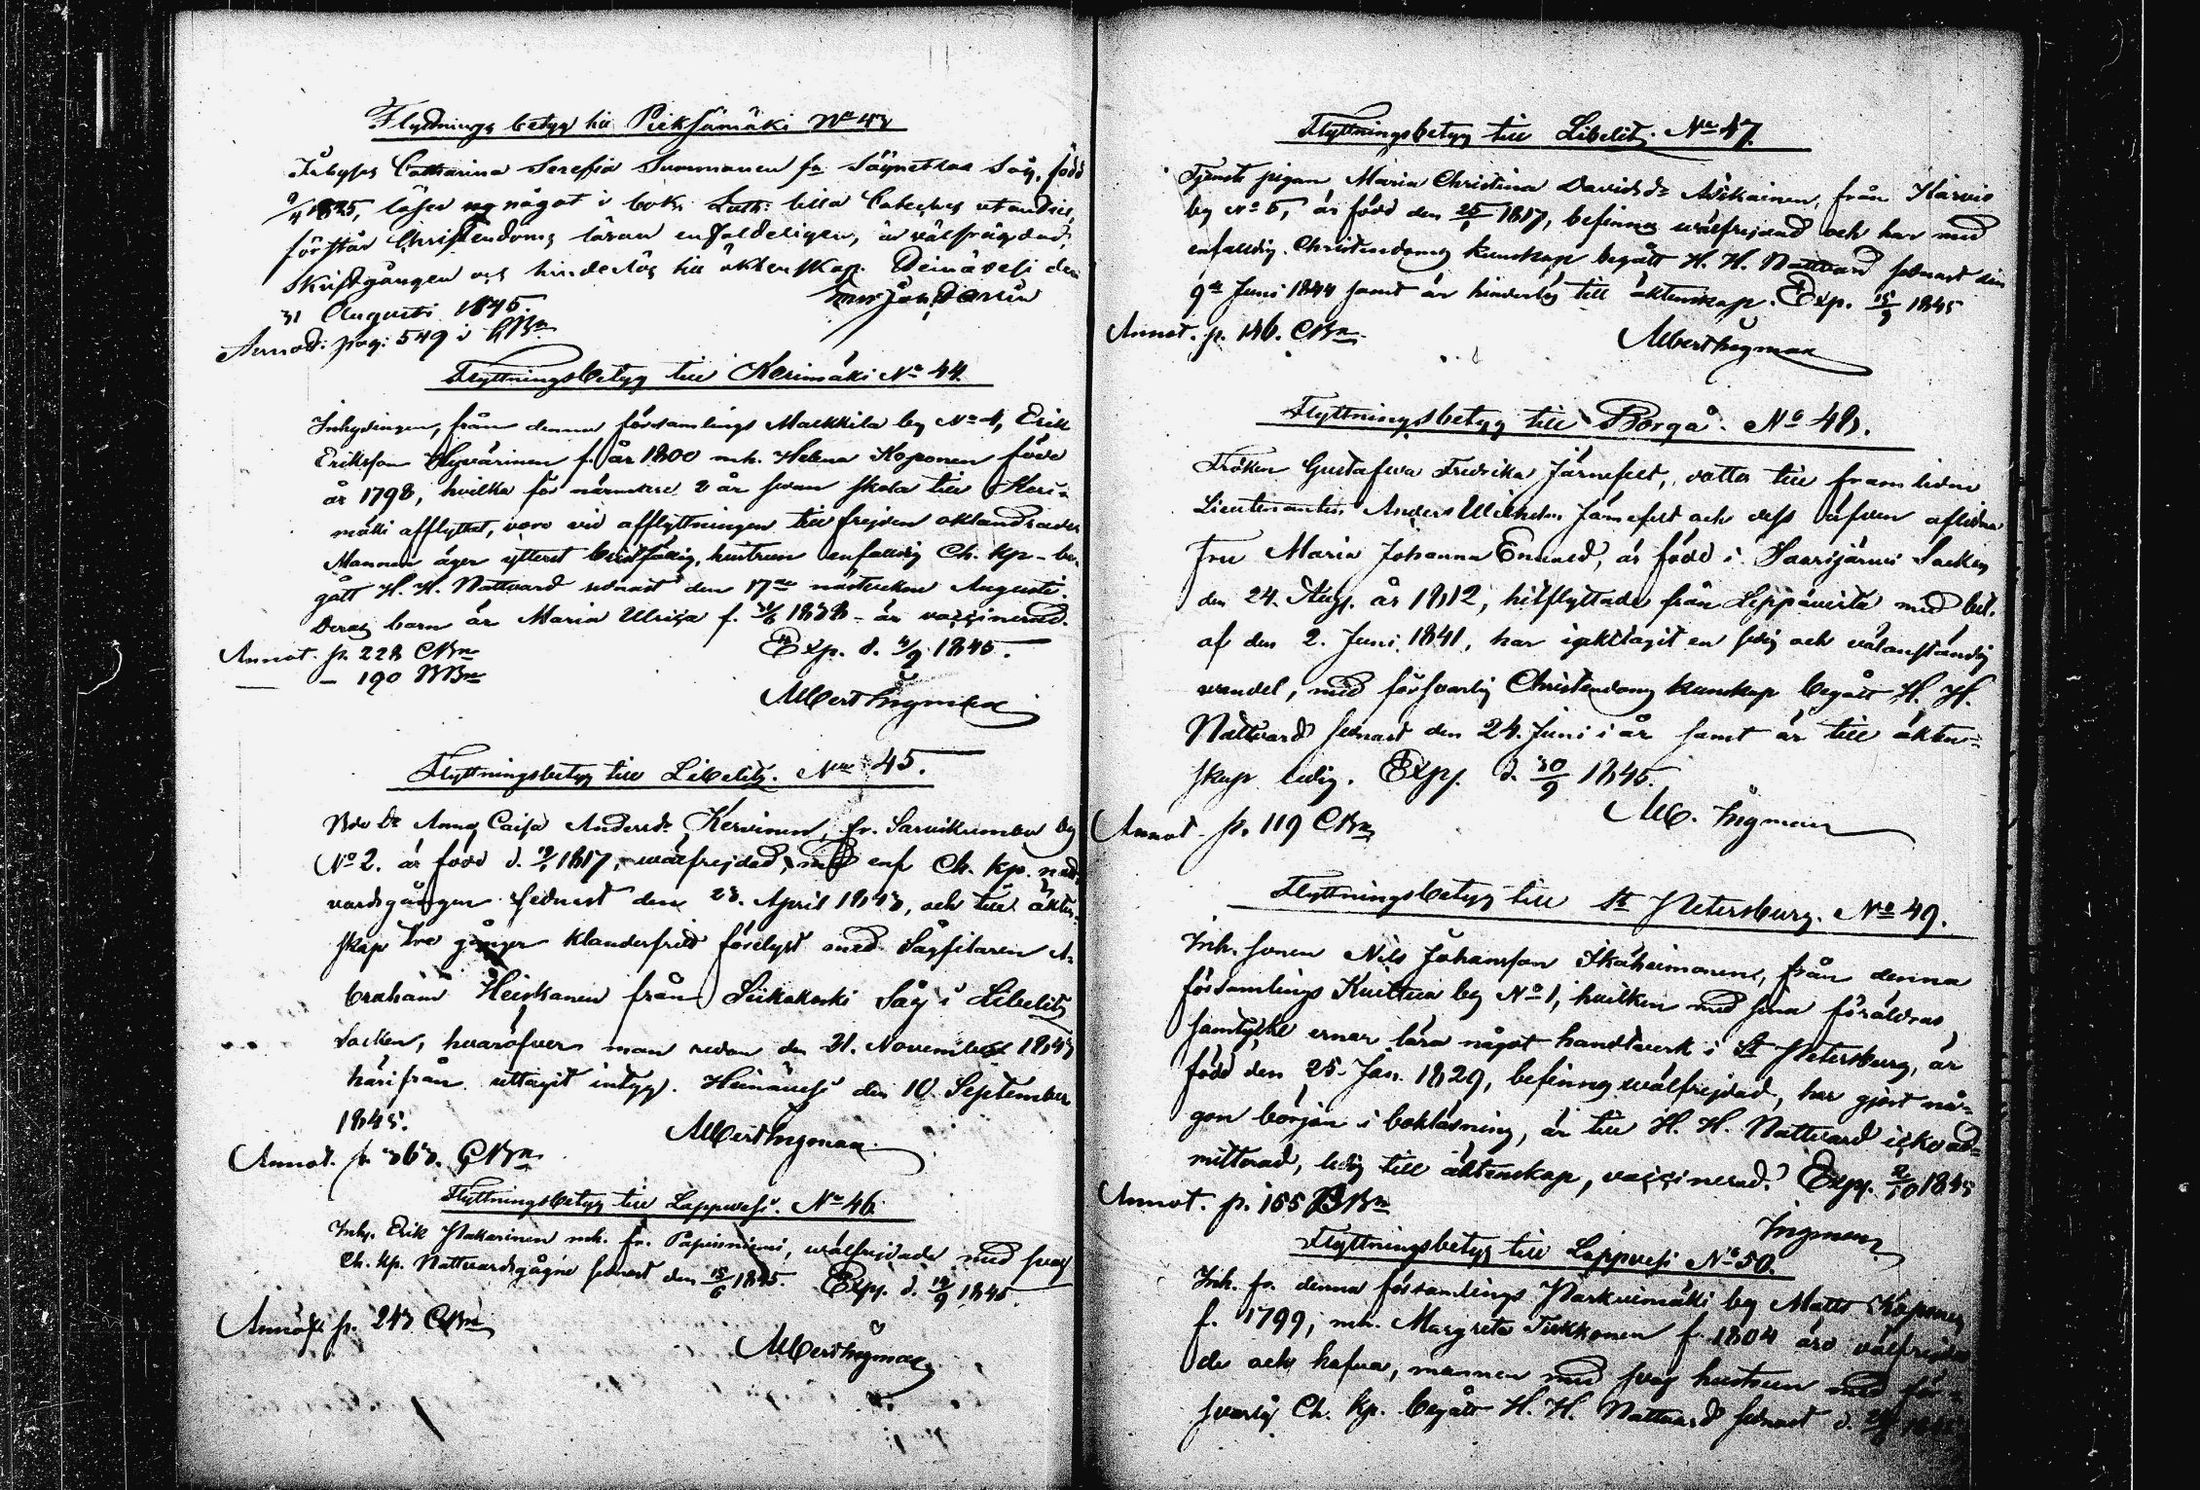 Flyttnings betyg till Pieksämäki No 43
Catharina Serefia Summanen fr. Säynetkos Såg, född
1825, läser något i bok; Luth: lilla Catechis utandtil,
förstår Christendoms läran enfaldeligen, är välfrägdad,
Skriftgången och hinderlös till äktenskap. den
31 Augusti 1845.
Annot: pag: 549 i CBn
Flyttningsbetyg till Kerimäki No 44.
Inhysingen, från denna församlings Malkkila by No 4, Erik
Eriksson Hyvärinen f. år 1800 mh. Helena Koponen född
år 1798, hvilka för närmare 2 år sedan skola till Keri-
mäki afflyttat, voro vid afflyttningen till frejden oklandrade
Mannen äger ytterst bristfällig, hustrun enfaldig Ch. kp - be-
gått H. H. Nattvard sednast den 17de nästvekne Augusti.
Deras barn är Maria Ulrica f. 1838 - är vaccinerad.
Annot. p. 228 CBn Exp. d. 4/9 1845.
— — 190 BBn
Albert Ingman
Flyttningsbetyg till Libelitz. No 45.
Anna Caisa Andersdr Kervinen, fr. Sarvikumbu by
No 2. är född d. 1817, wälfrejdad, med enf Ch. kp. natt-
vardsgången sednast den 23. April 1843, och till äkten-
skap tre gånger klanderfritt förelyst med Sågfilaren A-
braham Heiskanen från Siikakoski Såg i Libelitz
Socken, hvaröfver man redan den 21. November 1843
härifrån uttagit intyg. Heinävesi den 10. September
1845.
Albert Ingman
Annot. p. 363. CBn
Flyttningsbetyg till Lappvesi. No 46.
Inh. Erik Pakarinen mh. fr. Papinniemi, wälfrejdade med svag
Ch. kp. Nattvardsgågne sednast den 15/6 1845. Exp. d. 14/9 1845.
Annot. p. 243 CBn
Albert Ingman
Flyttningsbetyg till Libelitz. No 47.
Tjenste pigan, Maria Christina Davidsdr Asikainen, från Karvio
by No 5, är född den 1817, befinnes wälfrejdad och har med
enfaldig Christendoms kunskap begått H. H. Nattvard sednast den
9de Juni 1844 samt är hinderlös till äktenskap. Exp. 15/9 1845
Annot. p. 186. CBn
Albert Ingman
Flyttningsbetyg till Borgå. No 48.
Fröken Gustafva Fredrika Järnefelt, dotter till framlidne
Lieutenanten Anders Wilhelm Järnefelt och dess äfven aflidna
Fru Maria Johanna Enewald, är född i Saarijärvi Socken
den 24. Aug. år 1812, hitflyttade från Leppävirta med bet.
af den 2. Juni 1841, har iakttagit en sedig och välanständig
vandel, med försvarlig Christendoms kunskap begått H. H.
Nattvard sednast den 24. Juni i år samt är till äkten-
skap ledig. Exp. d. 30/9 1845.
Alb. Ingman
Annot. p. 119 CBn
Flyttningsbetyg till St Petersburg. No 49.
Inh. sonen Nils Johansson Ikäheimonen, från denna
församlings Kuittua by No 1, hvilken med sina föräldras
samtycke ernar lära något handtverk i St Petersburg, är
född den 25. Jan. 1829, befinnes wälfrejdad, har gjort nå-
gon början i bokläsning, är till H. H. Nattvard icke ad-
mitterad, ledig till äktenskap, vaccinerad. Exp. 2/10 1845
Annot. p. 155 BBn
Ingman
Flyttningsbetyg till Lappvesi No 50.
Inh. fr. denna församlings Parkuimäki by Matts Koponen
f. 1799, mh. Margreta Tirkkonen f. 1804 äro välfrejda-
de och hafva, mannen med svag hustrun med för-
svarlig Ch. kp. begått H. H. Nattvard sednast d.